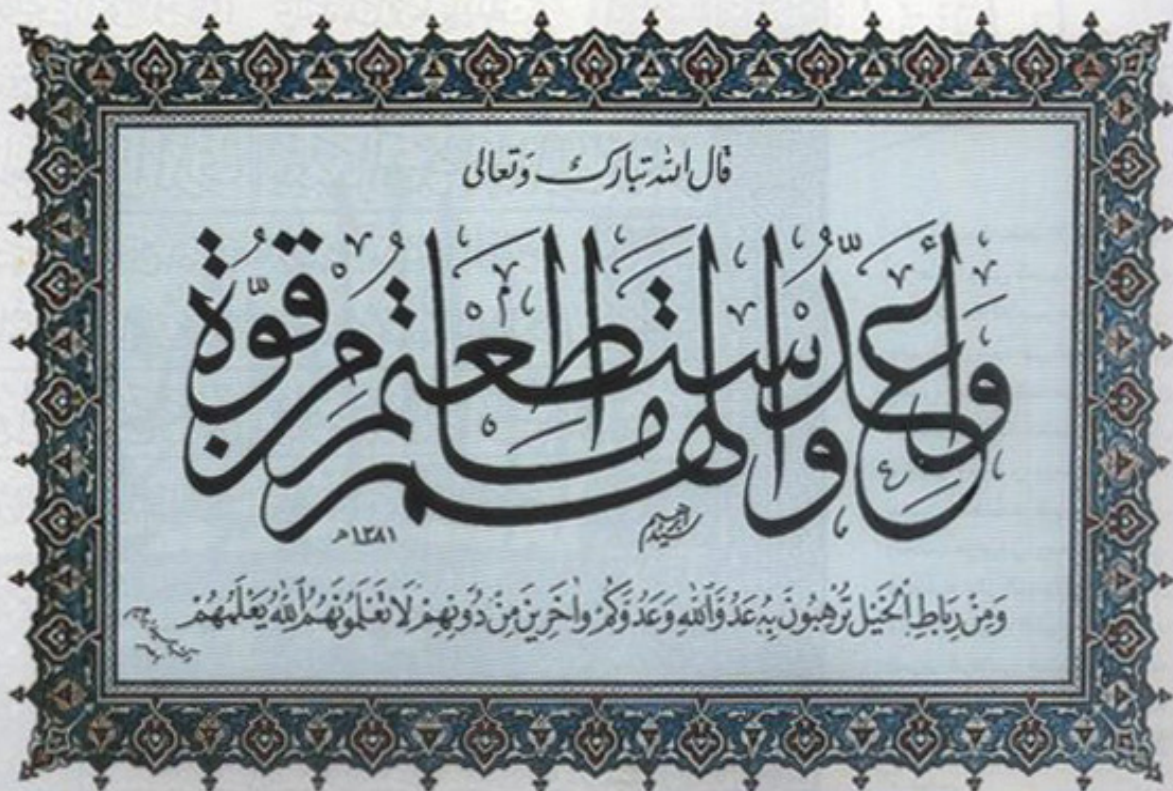 قال الله تبارك وتعالى
وَأَعِدُّوا لَهُم مَّا اسْتَطَعْتُم مِّن قُوَّةٍ
سيد ابراهيم
١٣٨١ هـ
وَمِنْ رِبَاطِ الْخَيْلِ تُرْهِبُونَ بِهِ عَدُوَّ اللهِ وَعَدُوَّكُمْ وَاٰخَرِينَ مِنْ دُونِهِمْ لَا تَعْلَمُونَهُمُ اللهُ يَعْلَمُهُمْ